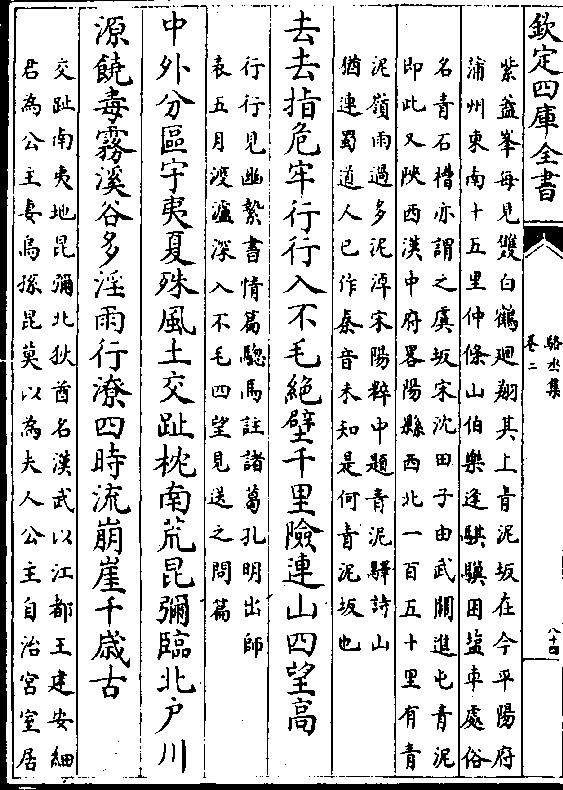 欽定四庫全書
駱丞集
卷二
八十四
紫蓋峯每見雙白鶴廻翔其上青泥坂在今平陽府
蒲州東南十五里仲條山伯樂逢騏驥困盐車處俗
名青石槽亦謂之虞坂宋沈田子由武關進屯青泥
即此又陜西漢中府畧陽縣西北一百五十里有青
泥嶺雨過多泥淖宋陽粹中題青泥驛詩山
猶連蜀道人已作秦音未知是何青泥坂也
去去指危牢行行入不毛絶壁千里險連山四望高
行行見幽縶書情篇驄馬註諸葛孔明出師
表五月渡瀘深入不毛四望見送之問篇
中外分區宇夷夏殊風土交趾枕南荒昆彌臨北户川
源饒毒霧溪谷多淫雨行潦四時流崩崖千歲古
交趾南夷地昆彌北狄酋名漢武以江都王建安細
君為公主妻烏孫昆莫以為夫人公主自治宮室居